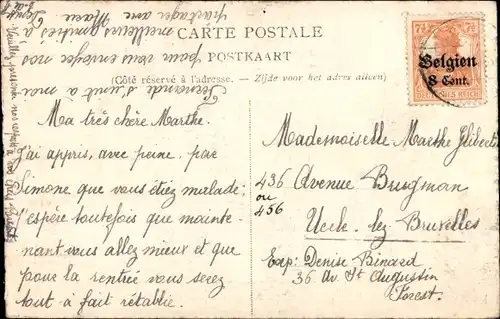 CARTE POSTALE
POSTKAART
(Côté réservé à l'adresse. — Zijde voor het adres alleen)
7½ 7½
Belgien
8 Cent.
DEUTSCHES REICH
Ma très chère Marthe.
J'ai appris, avec peine, par
Simone que vous étiez malade;
j'espère toutefois que mainte-
nant vous allez mieux et que
pour la rentrée vous serez
tout à fait rétablie.
Fernande s'unit à moi
pour vous envoyer nos
meilleures amitiés à
partager avec Marie
Mademoiselle Marthe
436 Avenue Brugman
ou
456
Uccle-lez-Bruxelles
Exp: Denise Binard
36 Av. St Augustin
Forest.